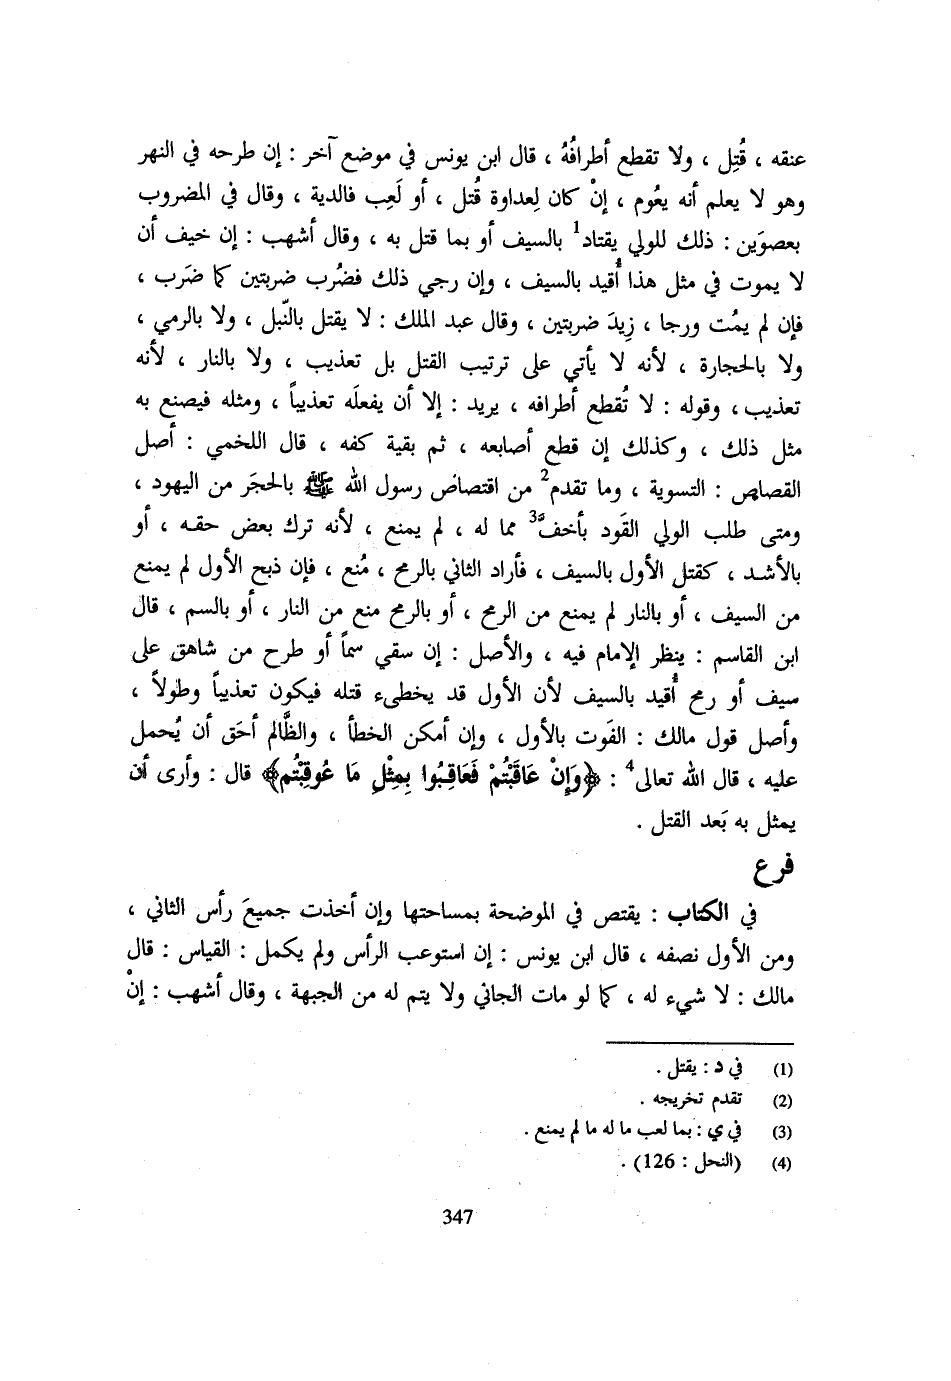 عنقه ، قُتِل ، ولا تقطع أطرافُهُ ، قال ابن يونس في موضع آخر : إن طرحه في النهر
وهو لا يعلم أنه يعُوم ، إنْ كان لِعداوة قُتل ، أو لَعِب فالدية ، وقال في المضروب
بعصوَين : ذلك للولي يقتاد1 بالسيف أو بما قتل به ، وقال أشهب : إن خيف أن
لا يموت في مثل هذا أُقيد بالسيف ، وإن رجي ذلك فضُرب ضربتين كما ضَرب ،
فإن لم يمُت ورجا ، زِيدَ ضربتين ، وقال عبد الملك : لا يقتل بالنّبل ، ولا بالرمي ،
ولا بالحجارة ، لأنه لا يأتي على ترتيب القتل بل تعذيب ، ولا بالنار ، لأنه
تعذيب ، وقوله : لا تُقطع أطرافه ، يريد : إلا أن يفعلَه تعذيباً ، ومثله فيصنع به
مثل ذلك ، وكذلك إن قطع أصابعه ، ثم بقية كفه ، قال اللخمي : أصل
القصاص : التسوية ، وما تقدم2 من اقتصاص رسول الله ﷺ بالحجَر من اليهود ،
ومتى طلب الولي القَود بأخفَّ3 مما له ، لم يمنع ، لأنه ترك بعض حقه ، أو
بالأشد ، كقتل الأول بالسيف ، فأراد الثاني بالرمح ، مُنع ، فإن ذبح الأول لم يمنع
من السيف ، أو بالنار لم يمنع من الرمح ، أو بالرمح منع من النار ، أو بالسم ، قال
ابن القاسم : ينظر الإمام فيه ، والأصل : إن سقي سماً أو طرح من شاهق على
سيف أو رمح أُقيد بالسيف لأن الأول قد يخطىء قتله فيكون تعذيباً وطولاً ،
وأصل قول مالك : القَوت بالأول ، وإن أمكن الخطأ ، والظَّالم أحَق أن يُحمل
عليه ، قال الله تعالى4 : ﴿وَإِنْ عَاقَبْتُمْ فَعَاقِبُوا بِمِثْلِ مَا عُوقِبْتُم﴾ قال : وأرى أن
يمثل به بَعد القتل .
فرع
في الكتاب : يقتص في الموضحة بمساحتها وإن أخذت جميعَ رأس الثاني ،
ومن الأول نصفه ، قال ابن يونس : إن استوعب الرأس ولم يكمل : القياس : قال
مالك : لا شيء له ، كما لو مات الجاني ولا يتم له من الجبهة ، وقال أشهب : إنْ
(1) في د : يقتل .
(2) تقدم تخريجه .
(3) في ي : بما لعب ما له ما لم يمنع .
(4) (النحل : 126) .
347